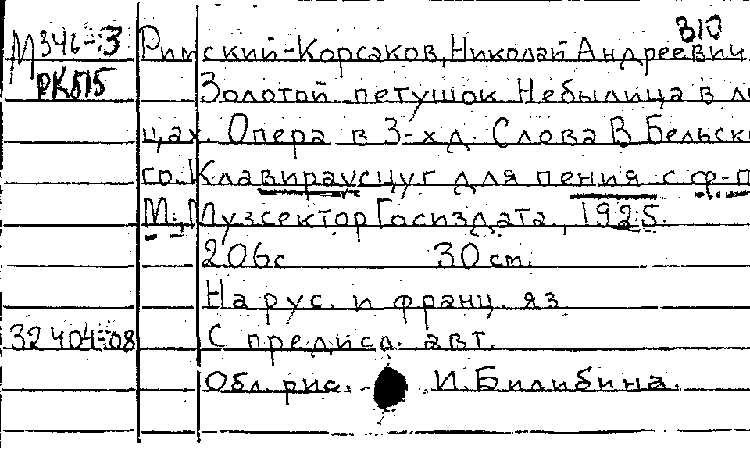 310
М346-3 Римский-Корсаков, Николай Андреевич
РК515 Золотой петушок Небылица в ли
цах. Опера в 3-хд. Слова В Бельск
го. Клавираусцуг для пения с ф-п
М., Музсектор Госиздата, 1925.
206с 30 см.
На рус. и франц. яз.
32404-08 С предисл. авт.
Обл. рис. И. Билибина.